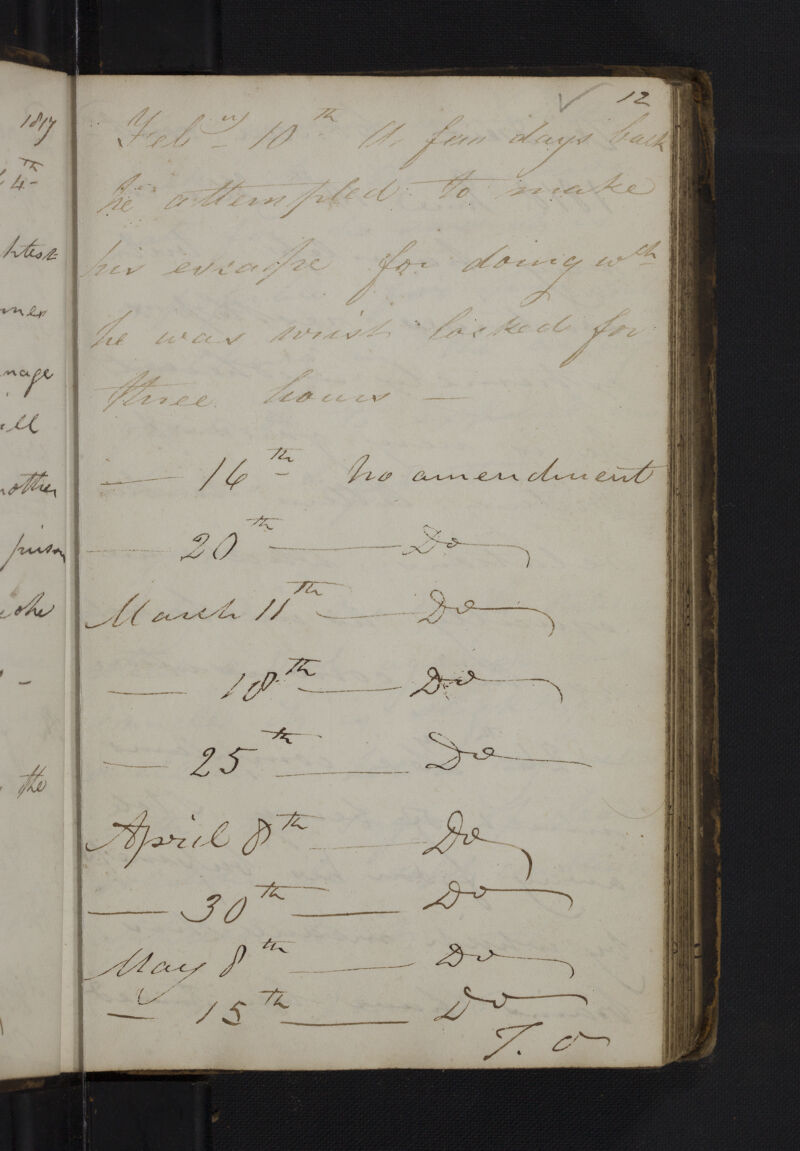 1817
4th
nage
ill
prison
the
12
Feby 10th A few days back
he attempted to make
his escape for doing wch
he was wrist locked for
three hours —
— 16th no amendment
— 20th — Do
March 11th — Do
— 18th — Do
— 25th — Do
April 8th — Do
— 30th — Do
May 8th — Do
— 15th — Do
T. O